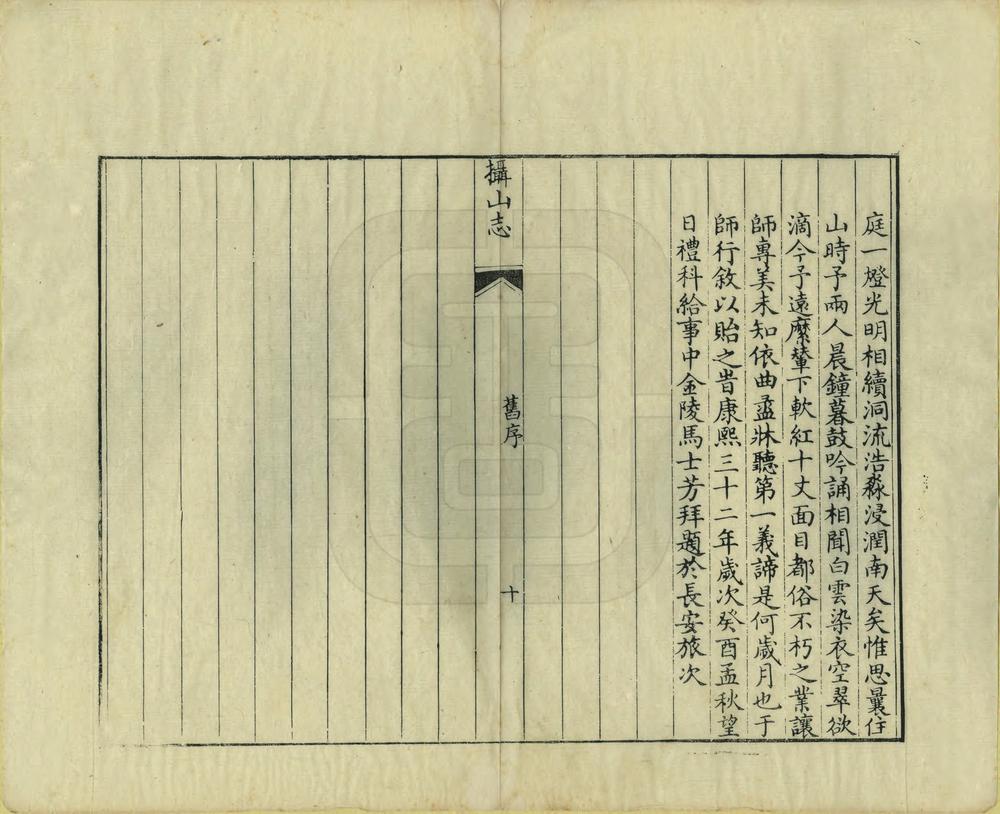 庭一燈光明相續洞流浩淼浸潤南天矣惟思曩住
山時予兩人晨鐘暮鼓吟誦相聞白雲染衣空翠欲
滴今予遠縻輦下軟紅十丈面目都俗不朽之業讓
師專美未知依曲盝牀聽第一義諦是何歲月也于
師行敘以貽之旹康熙三十二年歲次癸酉孟秋望
日禮科給事中金陵馬士芳拜題於長安旅次
攝山志
舊序
十